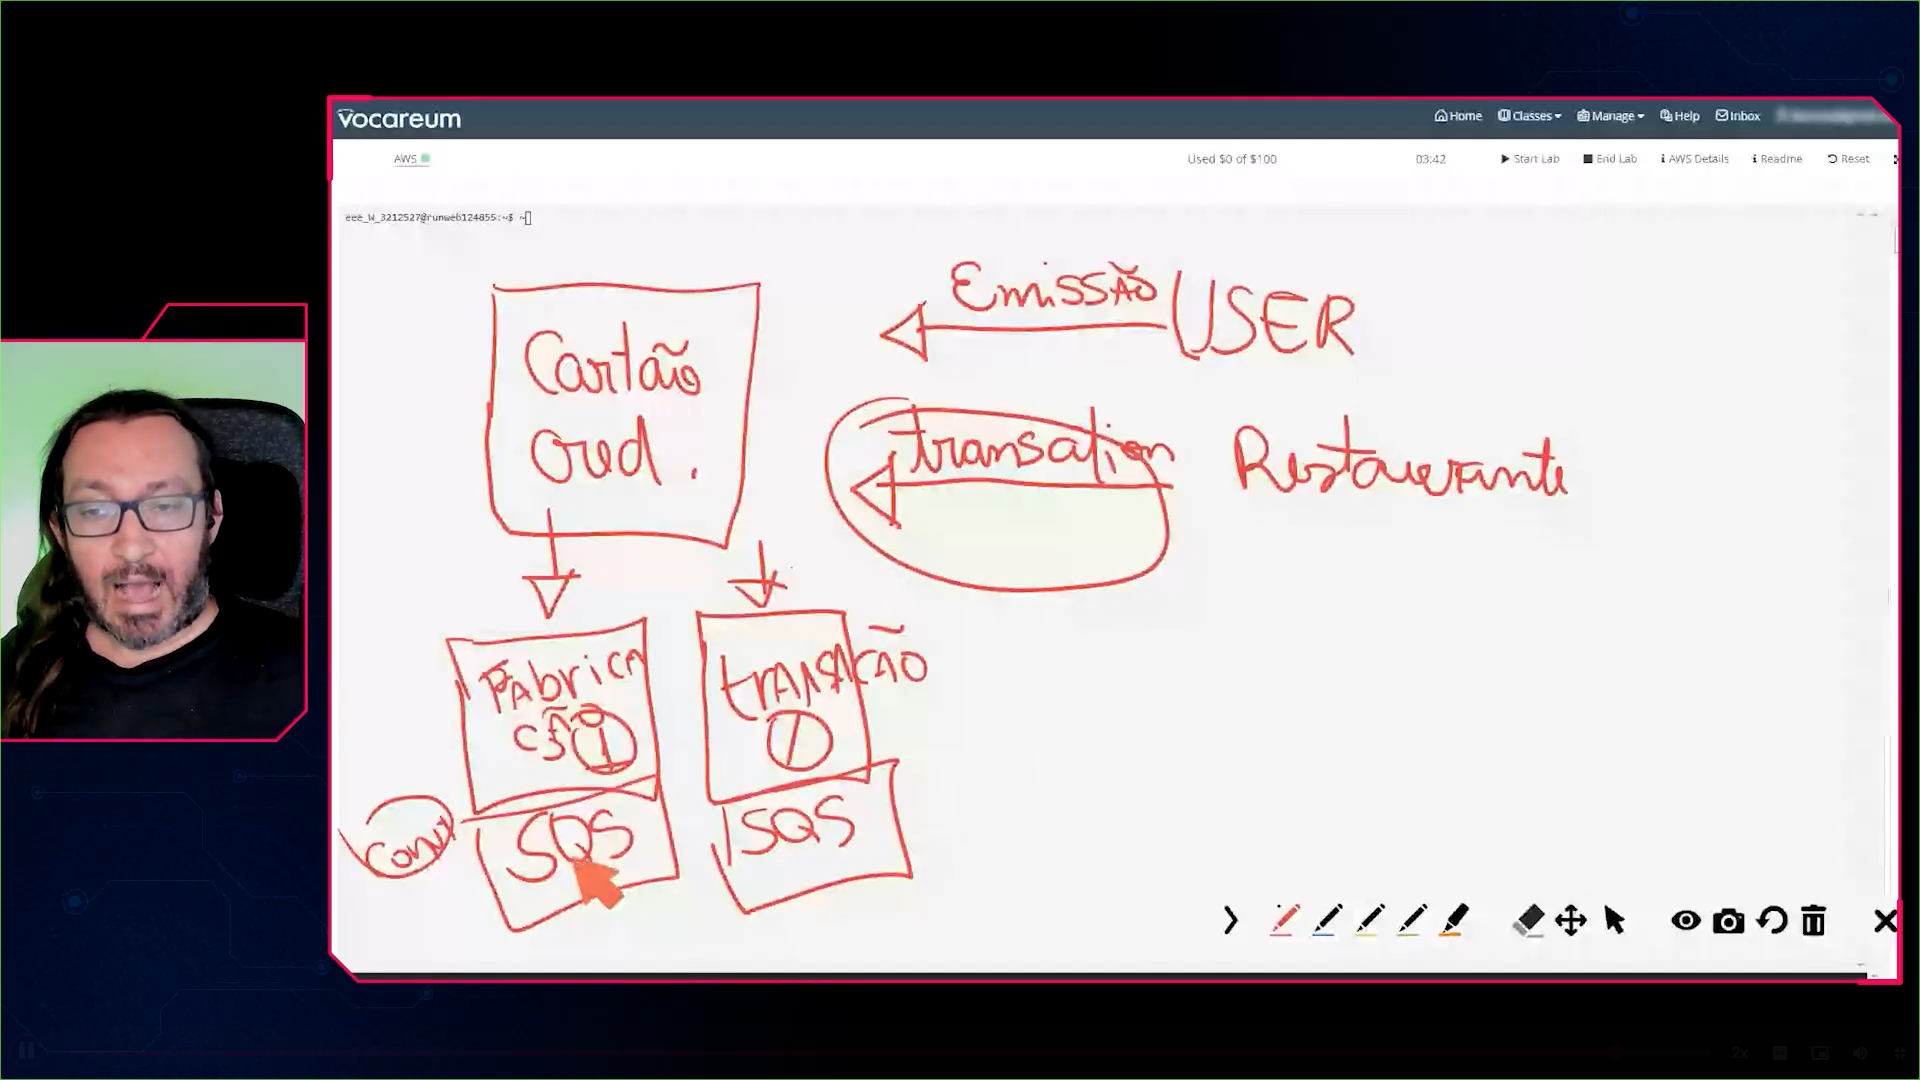 Vocareum
Home Classes Manage Help Inbox
AWS
Used $0 of $100
03:42
Start Lab End Lab AWS Details Readme Reset
eee_W_3212527@runweb124855:~$ ~
Emissão USER
Cartão
cred.
transation Restaurante
Fabrica
ção 1
transação
SQS
SQS
2x